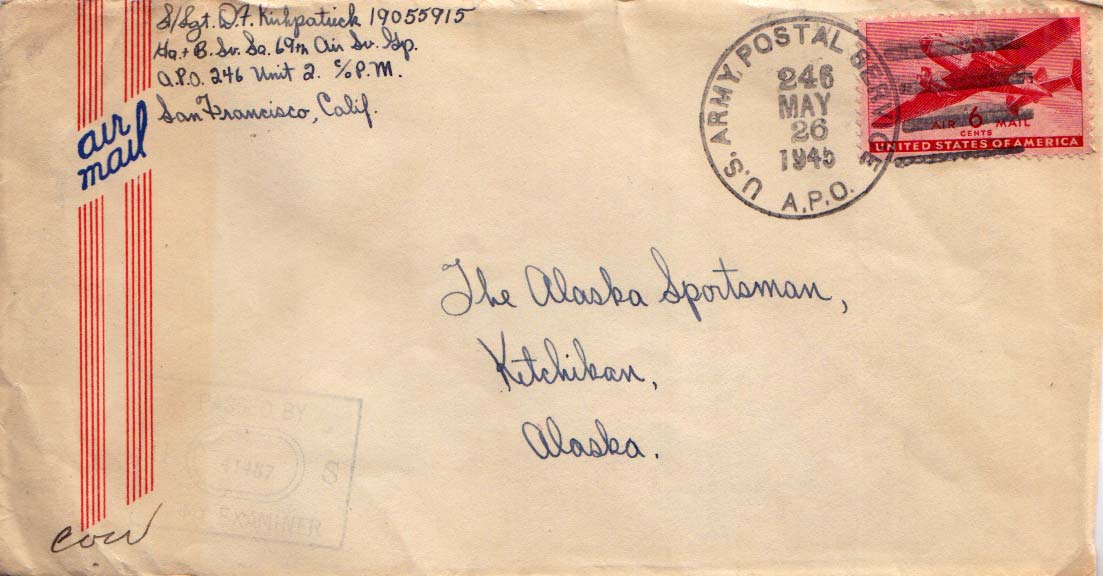 S/Sgt. D.F. Kirkpatrick 19055915
Hq. + B. Sv. Sq. 69th Air Sv. Gp.
A.P.O. 246 Unit 2. c/o P.M.
San Francisco, Calif.
air
mail
U.S. ARMY POSTAL SERVICE
246
MAY
26
1945
A.P.O.
AIR 6 MAIL
CENTS
UNITED STATES OF AMERICA
The Alaska Sportsman,
Ketchikan,
Alaska.
PASSED BY
41487 S
EXAMINER